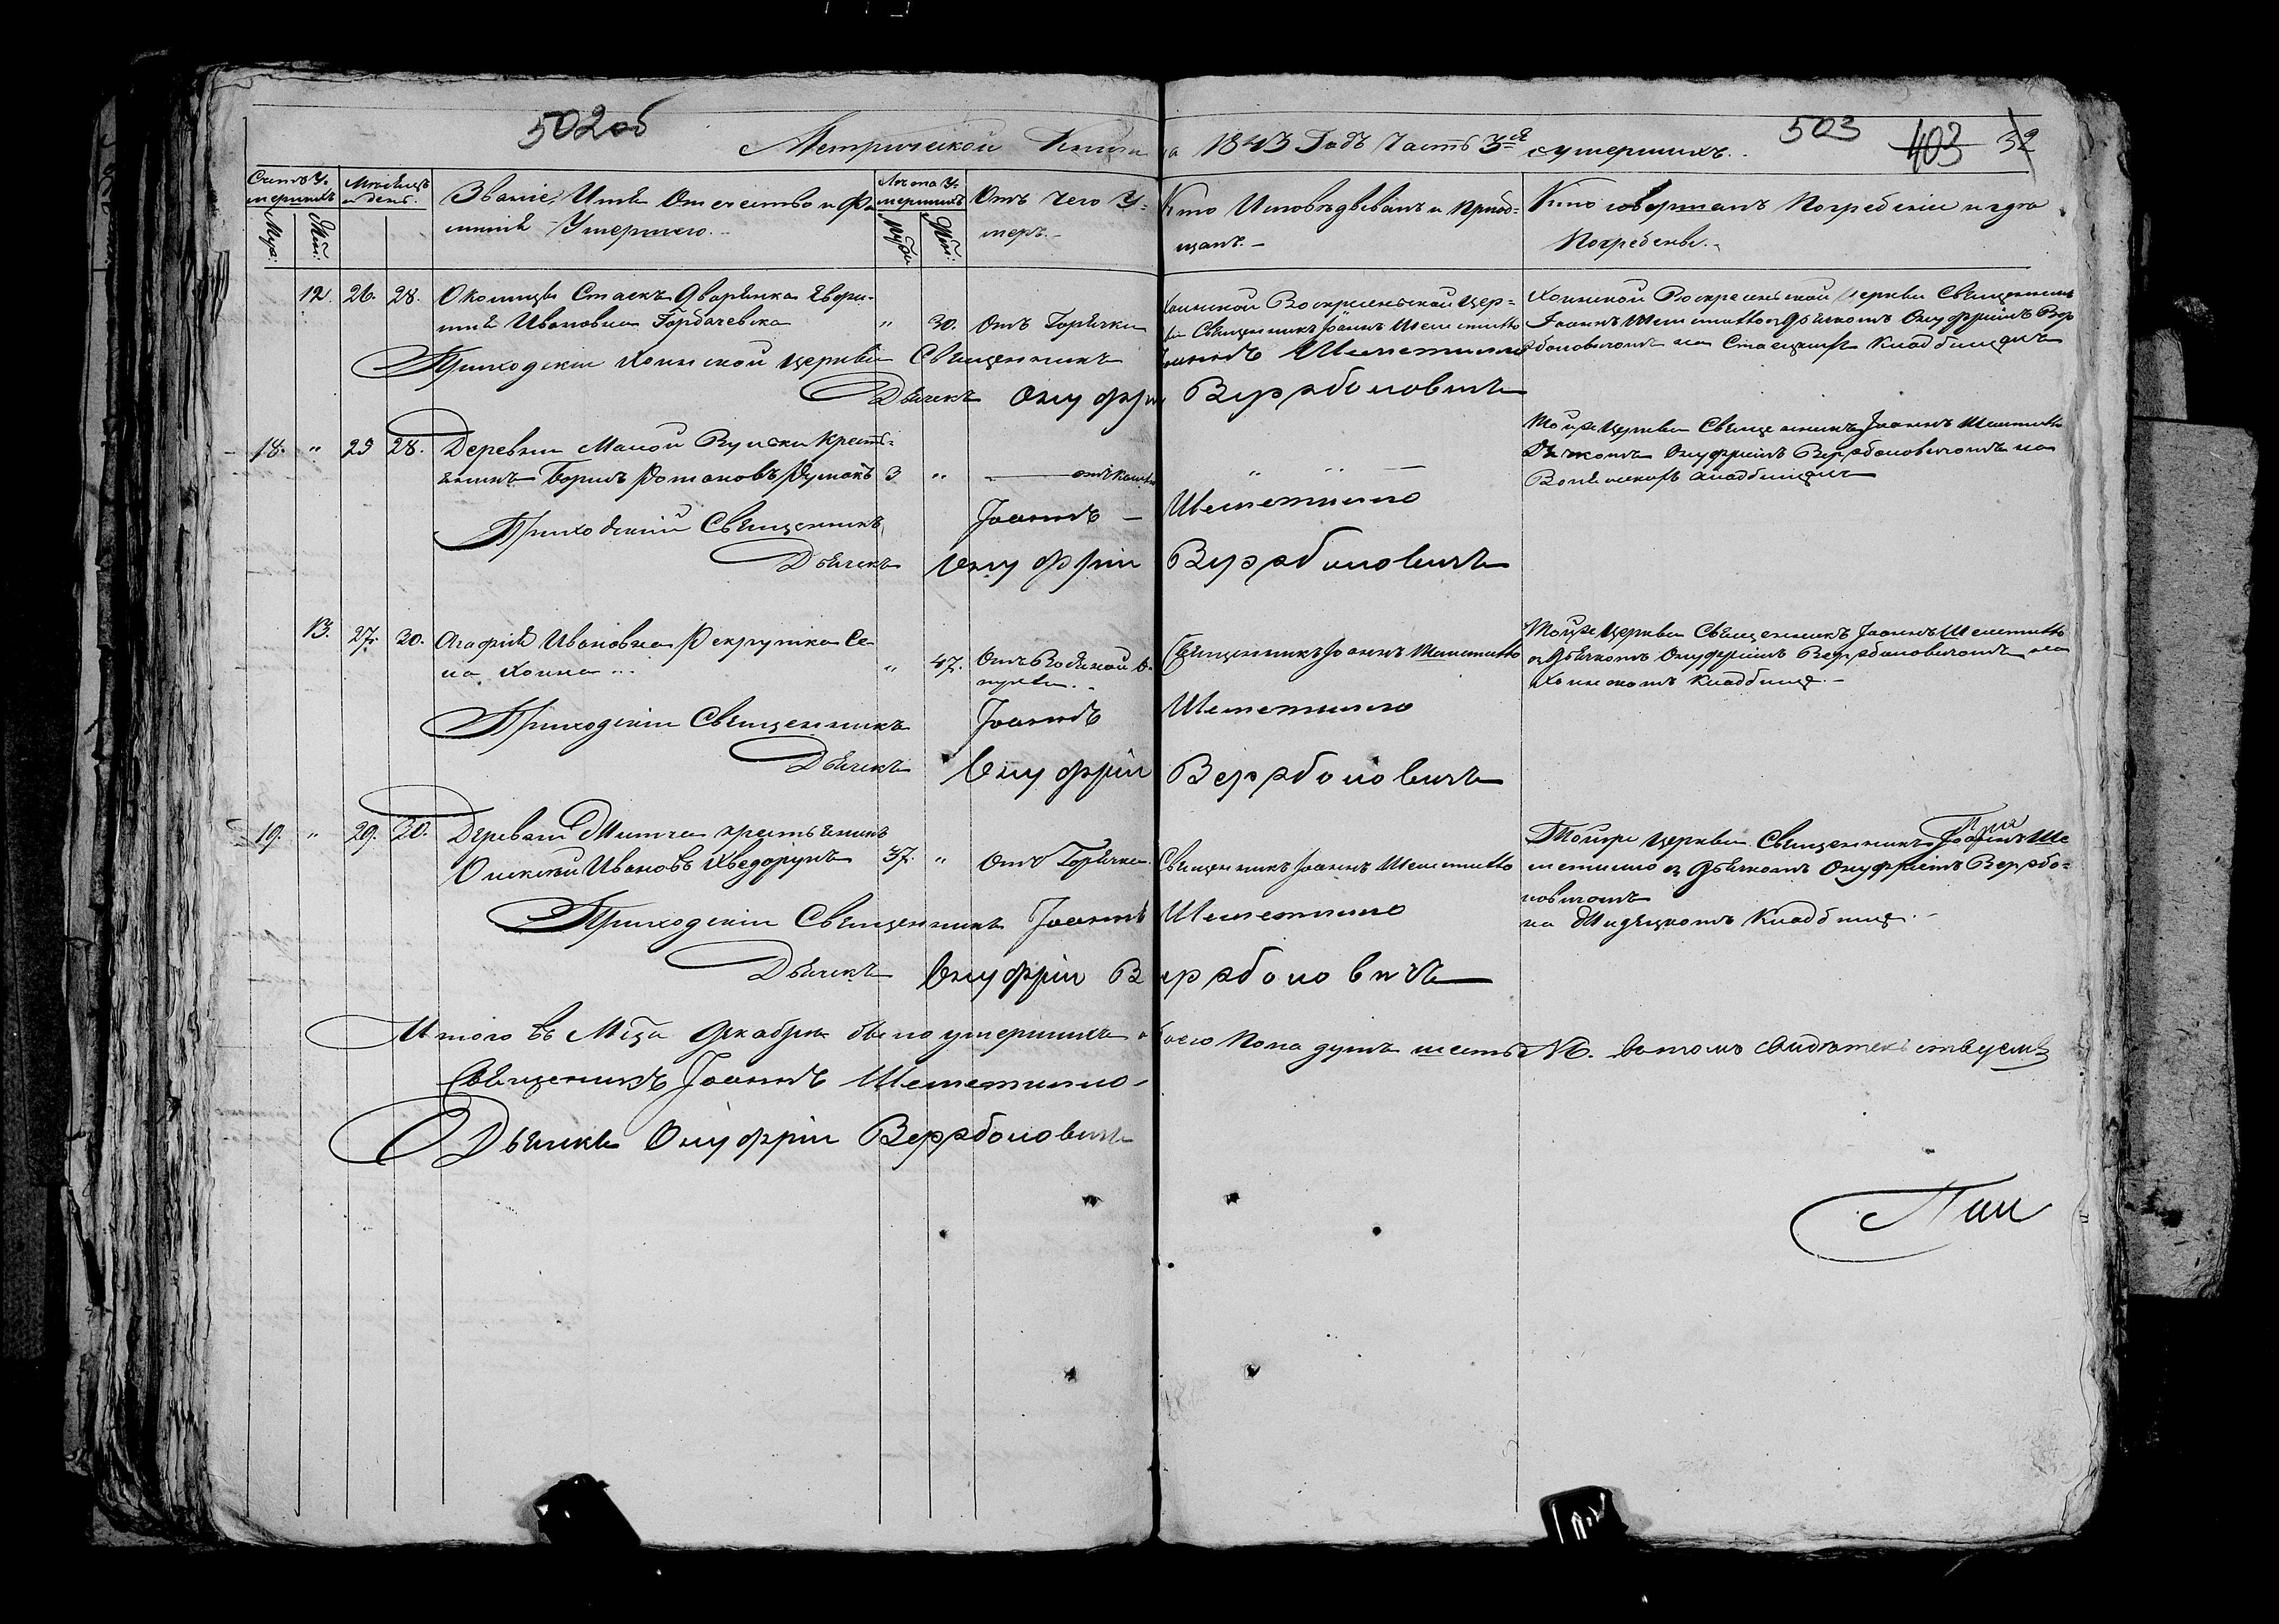 502об
503 403 32
Метрической Книги на 1843 Годъ Часть 3я о умершихъ.
Счетъ У-
мершихъ
Муж:
Жен:
Мѣсяцъ
и день.
Званіе, Имя Отчество и Фа
милія Умершаго.
Лѣта У-
мершихъ
Муж:
Жен:
Отъ Чего У-
меръ.
Кто Исповѣдывалъ и Приоб-
щалъ.
Кто совершалъ Погребеніе и гдѣ
Погребены.
12. 26. 28. Околицы Стаекъ Дворянка Евфи-
мія Ивановна Горбачевска " 30. Отъ Горячки
Хоинской Воскресенской Цер-
кви Священникъ Іоаннъ Шеметилло
Хоинской Воскресенской Церкви Священникъ
Іоаннъ Шеметилло съ Дьячкомъ Онуфріемъ Вер
боловичомъ на Стаецкихъ Кладбищахъ
Приходскій Хоинской церкви Священникъ Іоаннъ Шеметилло
Дьячекъ Онуфрій Верзболовичъ
18. " 25 28. Деревни Малой Вулски Кресть-
янинъ Борисъ Романовъ 3 " отъ кашля " "
Тойже Церкви Священникъ Іоаннъ Шеметилло
Дьячкомъ Онуфріемъ Верзболовичомъ на
кладбищахъ
Приходскій Священникъ Іоаннъ Шеметилло
Дьячекъ Онуфрій Верзболовичъ
13. 27. 30. Агафія Ивановна Рекрутка Се-
ла Хоина " 47. Отъ Водяной О-
пухли.
Священникъ Іоаннъ Шеметилло
Тойже Церкви Священникъ Іоаннъ Шеметилло
съ Дьячкомъ Онуфріемъ Верзболовичомъ на
Хоинскомъ Кладбище.
Приходскій Священникъ Іоаннъ Шеметилло
Дьячекъ Онуфрій Верзболовичъ
19. " 29. 30. Деревни крестьянинъ
Алексѣй Ивановъ Хведорукъ 37. " Отъ Горячки
Священникъ Іоаннъ Шеметилло
Тойже Церкви Священникъ Іоаннъ Ше
метилло съ Дьячкомъ Онуфріемъ Верзбо-
ловичомъ
на Кладбище.
Приходскій Священникъ Іоаннъ Шеметилло
Дьячекъ Онуфрій Верзболовичъ
Итого въ Мцѣ Декабрѣ было умершихъ обоего Пола душъ шесть №6. въ томъ свидѣтельствуемъ
Священникъ Іоаннъ Шеметилло
Дьячекъ Онуфрій Верзболовичъ